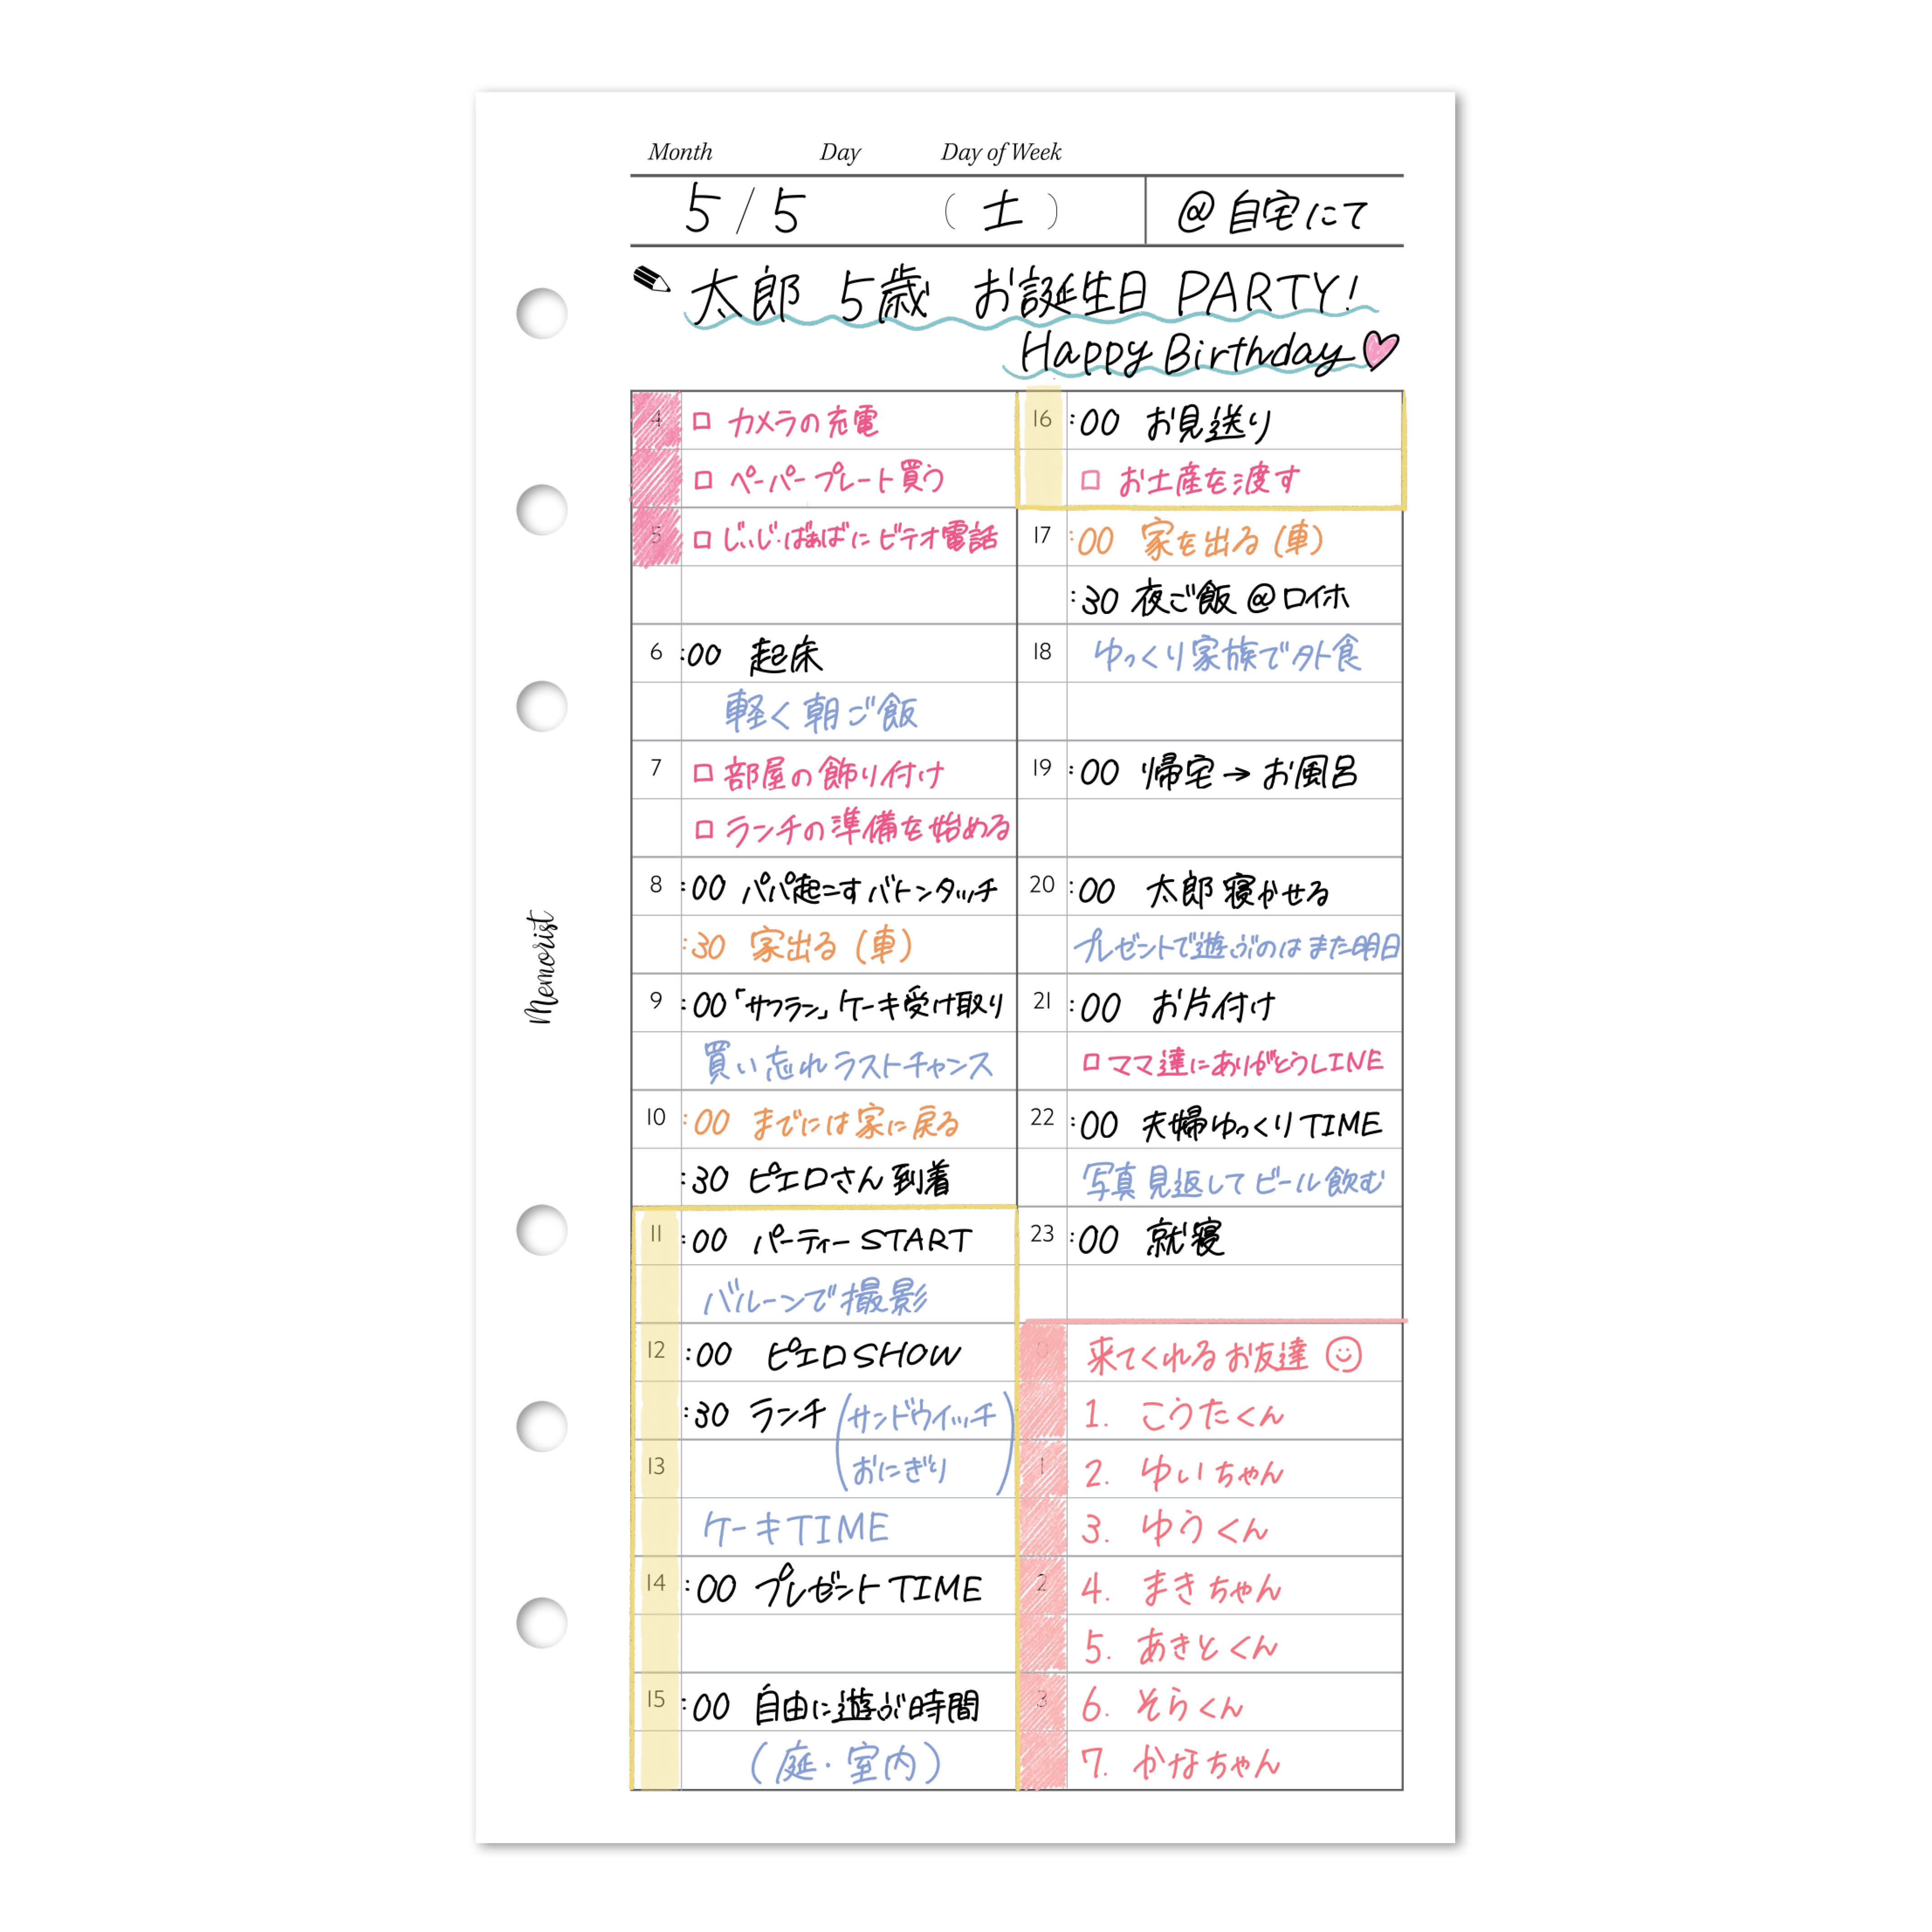 Month Day Day of Week
5/5 (土) @自宅にて
太郎 5歳 お誕生日 PARTY!
Happy Birthday
4 □ カメラの充電
□ ペーパープレート買う
5 □ じぃじ・ばぁばにビデオ電話
6 :00 起床
軽く朝ご飯
7 □ 部屋の飾り付け
□ ランチの準備を始める
8 :00 パパ起こすバトンタッチ
:30 家出る (車)
9 :00 「サフラン」ケーキ受け取り
買い忘れラストチャンス
10 :00 までには家に戻る
:30 ピエロさん到着
11 :00 パーティー START
バルーンで撮影
12 :00 ピエロ SHOW
:30 ランチ (サンドウイッチ
13 おにぎり)
ケーキTIME
14 :00 プレゼント TIME
15 :00 自由に遊ぶ時間
(庭・室内)
16 :00 お見送り
□ お土産を渡す
17 :00 家を出る (車)
:30 夜ご飯 @ロイホ
18 ゆっくり家族で外食
19 :00 帰宅→お風呂
20 :00 太郎寝かせる
プレゼントで遊ぶのはまた明日
21 :00 お片付け
□ ママ達にありがとうLINE
22 :00 夫婦ゆっくりTIME
写真見返してビール飲む
23 :00 就寝
0 来てくれるお友達
1. こうたくん
1 2. ゆいちゃん
3. ゆうくん
2 4. まきちゃん
5. あきとくん
3 6. そらくん
7. かなちゃん
Memorist